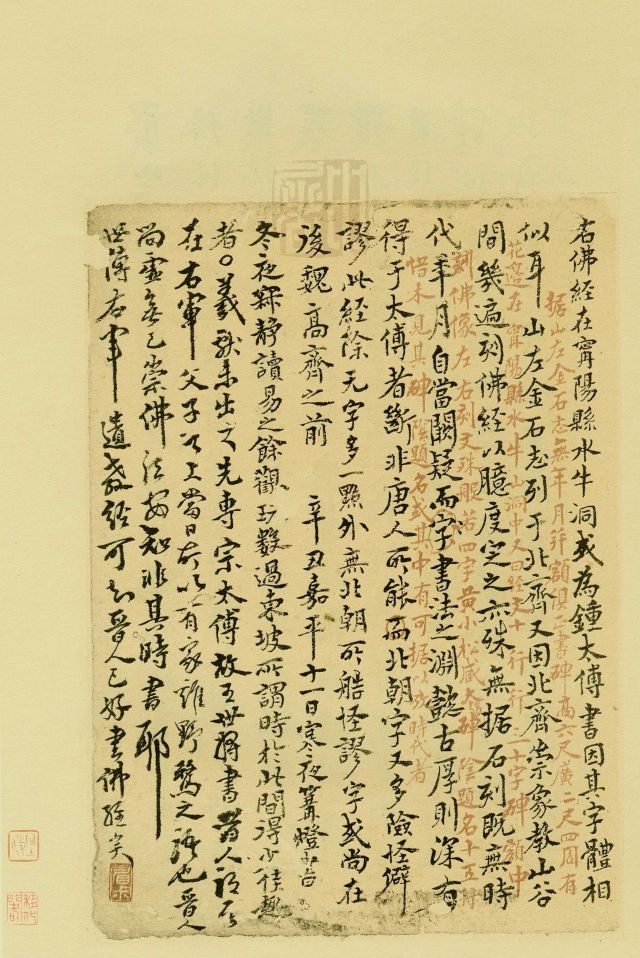 右佛經在甯陽縣水牛洞或為鍾太傅書因其字體相
似耳山左金石志列于北齊又因北齊崇象教山谷
間幾遍刻佛經以臆度定之亦殊無据石刻既無時
代年月自當闕疑而字書法之淵懿古厚則深有
得于太傅者斷非唐人所能而北朝字又多險怪僻
謬此經除无字多一點外無北朝所 怪謬字或尚在
後魏高齊之前 辛丑嘉平十一日寒夜篝燈
冬夜寂靜讀易之餘觀玩數過東坡所謂時於此間得少佳趣
者○羲獻未出以先專宗太傅故王世將書晉人
在右軍父子以上當日右 有家雞野鶩之語也晉人
尚靈 已崇佛法安知非其時書耶
世傳右軍遺教經可知晉人已好書佛經矣
据山左金石志無年月并額俱正書碑高六尺廣二尺四周有
花邊在甯陽縣水牛山洞中文曰經文十行行 十字碑額中
刻佛像左右刻文殊般若四字黃小松咸 碑陰題名十五
惜未見其碑陰題名或其中有可据以攷時代者